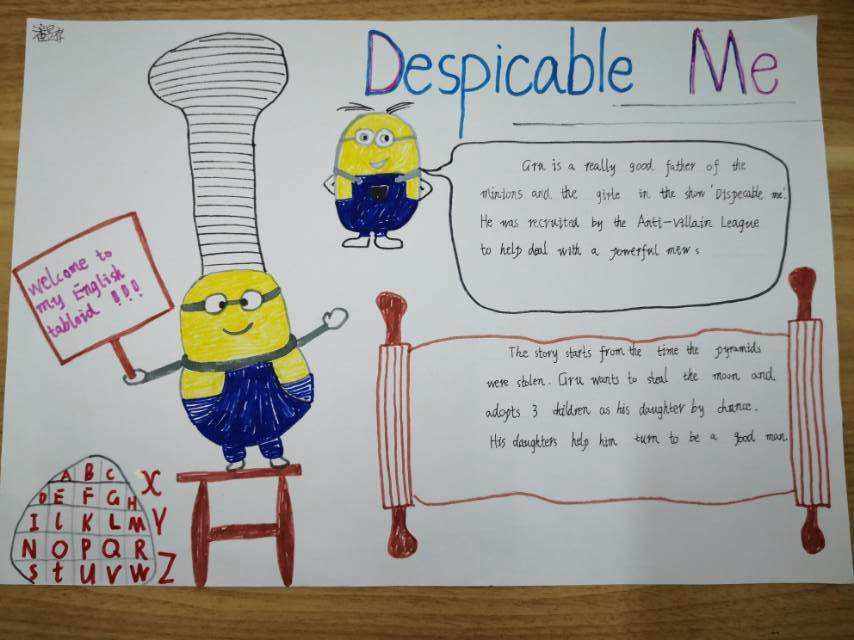 Despicable Me
Welcome to
my English
tabloid !!!
Gru is a really good father of the
minions and the girle in the show 'Dispecable me'.
He was recruited by the Anti-Villain League
to help deal with a powerful mew s
The story starts from the time the pyramids
were stolen. Gru wants to steal the moon and
adopts 3 children as his daughter by chance.
His daughters help him turn to be a good man.
A B C
D E F G H
I l K L M
N O P Q R
S t U V W
X
Y
Z